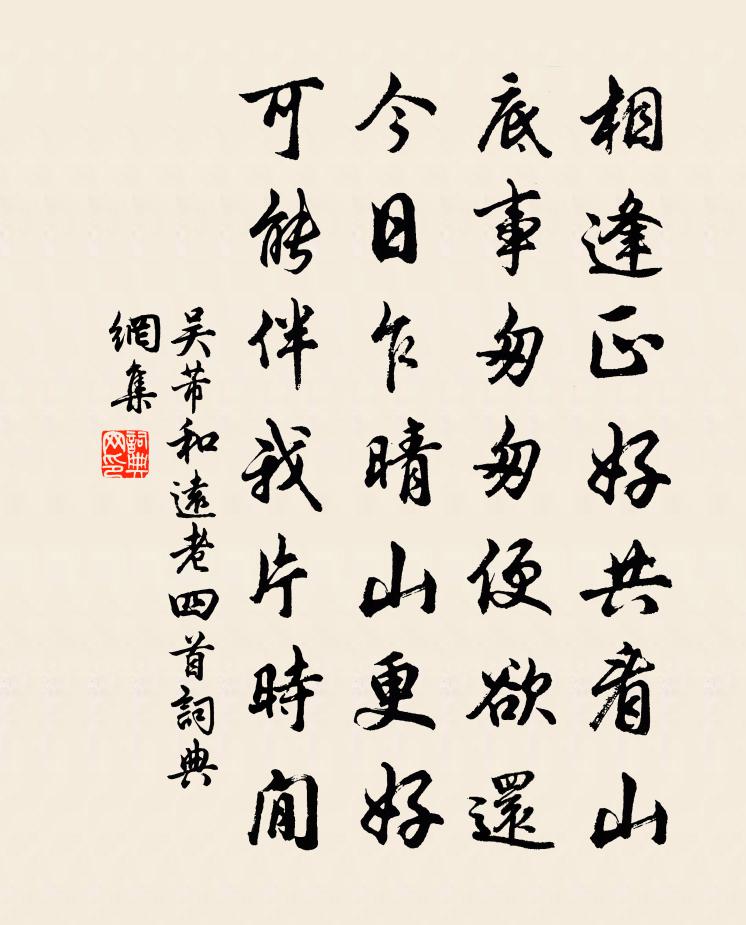 相逢正好共看山
底事匆匆便欲還
今日乍晴山更好
可能伴我片時間
吳芾和遠老四首詞典
網集
詞典網印